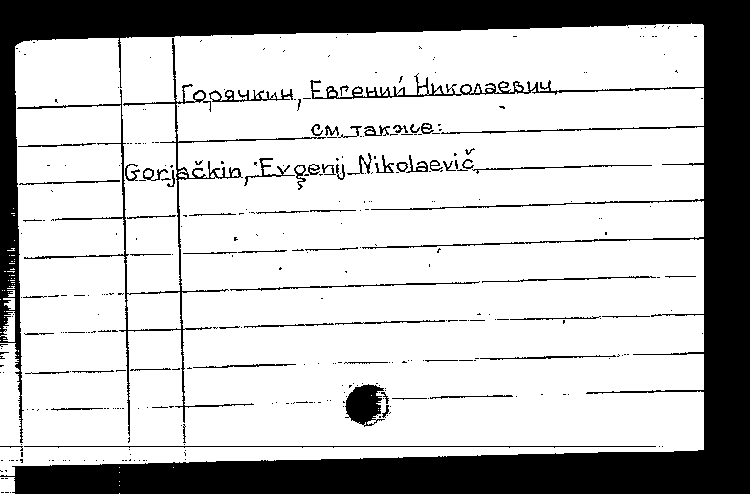 Горячкин, Евгений Николаевич.
см. также:
Gorjačkin, Evgenij Nikolaevič.